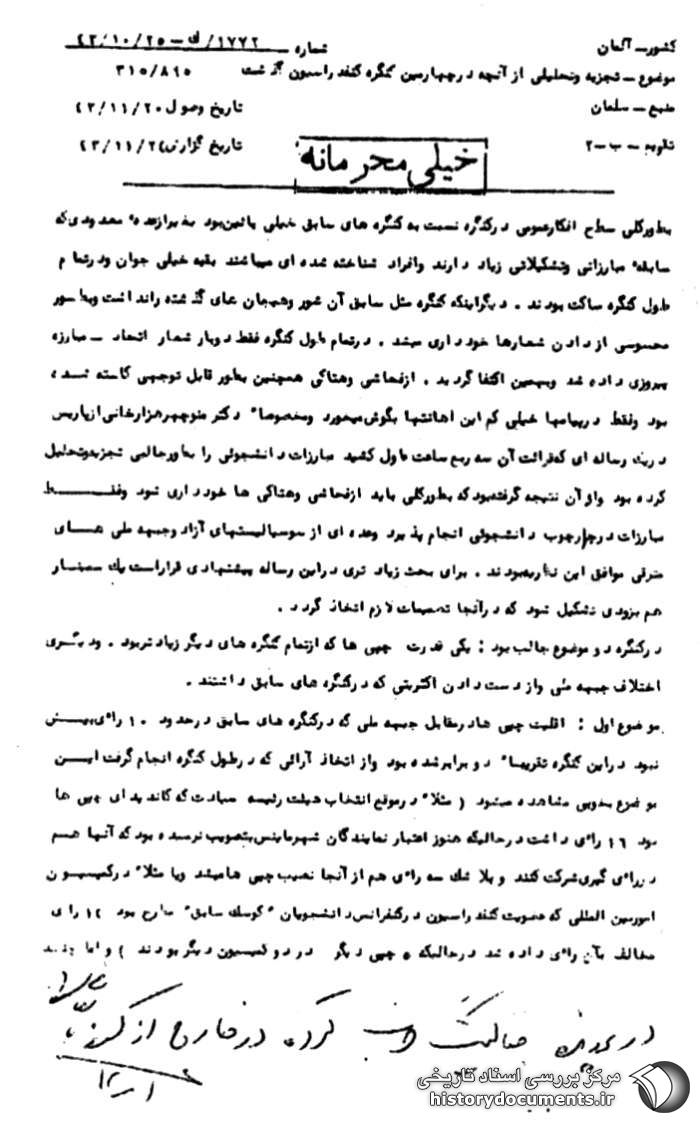 کشور ــ آلمان
شماره ۱۷۷۲/ ك ــ ۲۵/ ۱۰/ ۴۳
موضوع ــ تجزیه وتحلیلی از آنچه در چهارمین کنگره کنفدراسیون گذشت ۳۱۵/۸۹۵
منبع ــ سلمان
تاریخ وصول ۲۰/ ۱۱/ ۴۳
تقویم ــ ب ــ ۲
تاریخ گزارش ۴۳/۱۱/۲
خیلی محرمانه
بطورکلی سطح افکارعمومی درکنگره نسبت به کنگره های سابق خیلی پائین بود بغیرازعده معدودی که
سابقه مبارزاتی وتشکیلاتی زیاد دارند وافراد شناخته شده ای میباشند بقیه خیلی جوان ودرتمام
طول کنگره ساکت بودند . دیگراینکه کنگره مثل سابق آن شور وهیجان های گذشته رانداشت وبطور
محسوسی از دادن شعارها خودداری میشد . درتمام طول کنگره فقط دوبار شعار اتحاد ــ مبارزه
پیروزی داده شد وبهمین اکتفا گردید . ازفحاشی وهتاکی همچنین بطور قابل توجهی کاسته شده
بود وفقط درپیامها خیلی کم این اهانتها بگوش میخورد ومخصوصاً دکتر منوچهرهزارخانی ازپاریس
دریك رساله ای که قرائت آن سه ربع ساعت طول کشید مبارزات دانشجوئی را بطورجالبی تجزیه وتحلیل
کرده بود واز آن نتیجه گرفته بود که بطورکلی باید ازفحاشی وهتاکی ها خودداری شود وفقط
مبارزات درچارچوب دانشجوئی انجام پذیرد وعده ای از سوسیالیستهای آزاد وجبهه ملی های
مترقی موافق این نظریه بودند . برای بحث زیاد تری دراین رساله پیشنهادی قراراست یك سمینار
هم بزودی تشکیل شود که درآنجا تصمیمات لازم اتخاذ گردد .
درکنگره دو موضوع جالب بود : یکی قدرت چپی ها که ازتمام کنگره های دیگر زیادتربود . ودیگری
اختلاف جبهه ملی واز دست دادن اکثریتی که درکنگره های سابق داشتند .
موضوع اول : اقلیت چپی ها درمقابل جبهه ملی که درکنگره های سابق درحدود ۱۰ رای بیش
نبود دراین کنگره تقریباً دو برابرشده بود واز اتخاذ آرائی که درطول کنگره انجام گرفت این
موضوع بخوبی مشاهده میشود ( مثلاً درموقع انتخاب هیئت رئیسه عبادت که کاندیدای چپی ها
بود ۱۶ رای داشت درحالیکه هنوز اعتبار نمایندگان شهرماینس بتصویب نرسیده بود که آنها هم
دررای گیری شرکت کنند و بلا شك سه رای هم از آنجا نصیب چپی ها میشد ویا مثلاً درکمیسیون
امور بین المللی که عضویت کنفدراسیون درکنفرانس دانشجویان "کوسك سابق" مطرح بود ۱۲ رای
مخالف بآن رای داده شد درحالیکه ۵ چپی دیگر در دو کمیسیون دیگر بودند ) و اما
کرده در خارج از
مرکز بررسی اسناد تاریخی
historydocuments.ir